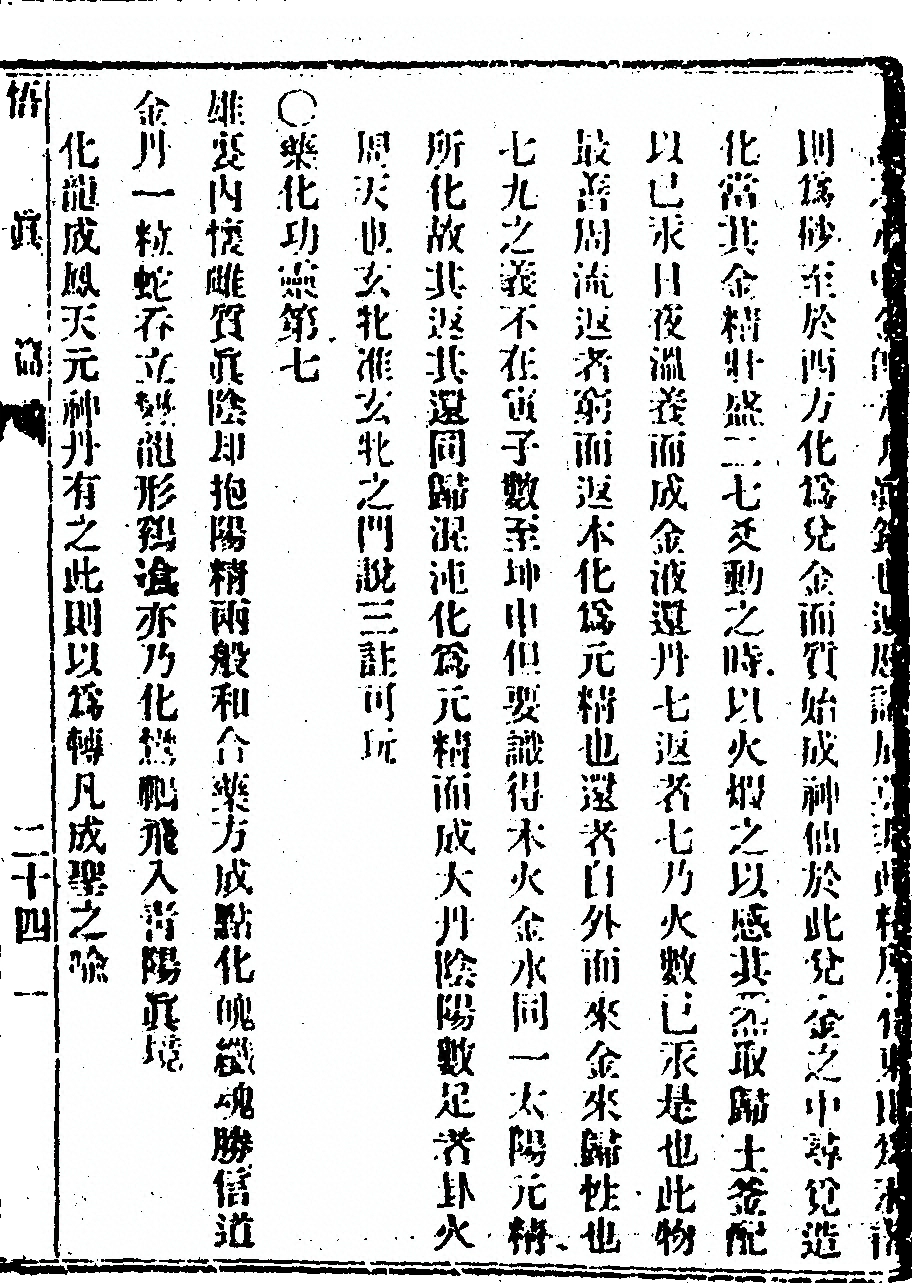 則爲砂至於西方化爲兌金而質始成神仙於此兌金之中尋兌造
化當其金精壯盛二七爻動之時以火煆之以感其炁取歸土釜配
以已汞日夜溫養而成金液還丹七返者七乃火數已汞是也此物
最善周流返者窮而返本化爲元精也還者自外而來金來歸性也
七九之義不在寅子數至坤申但要識得木火金水同一太陽元精
所化故其返其還同歸混沌化爲元精而成大丹陰陽數足者卦火
周天也玄牝准玄牝之門說三註可玩
〇藥化功靈第七
雄裏內懷雌質眞陰却抱陽精兩般和合藥方成點化魄纖魂勝信道
金丹一粒蛇吞立變龍形鷄湌亦乃化鸞鵬飛入青陽眞境
化龍成鳳天元神丹有之此則以爲轉凡成聖之喻
悟眞篇 二十四